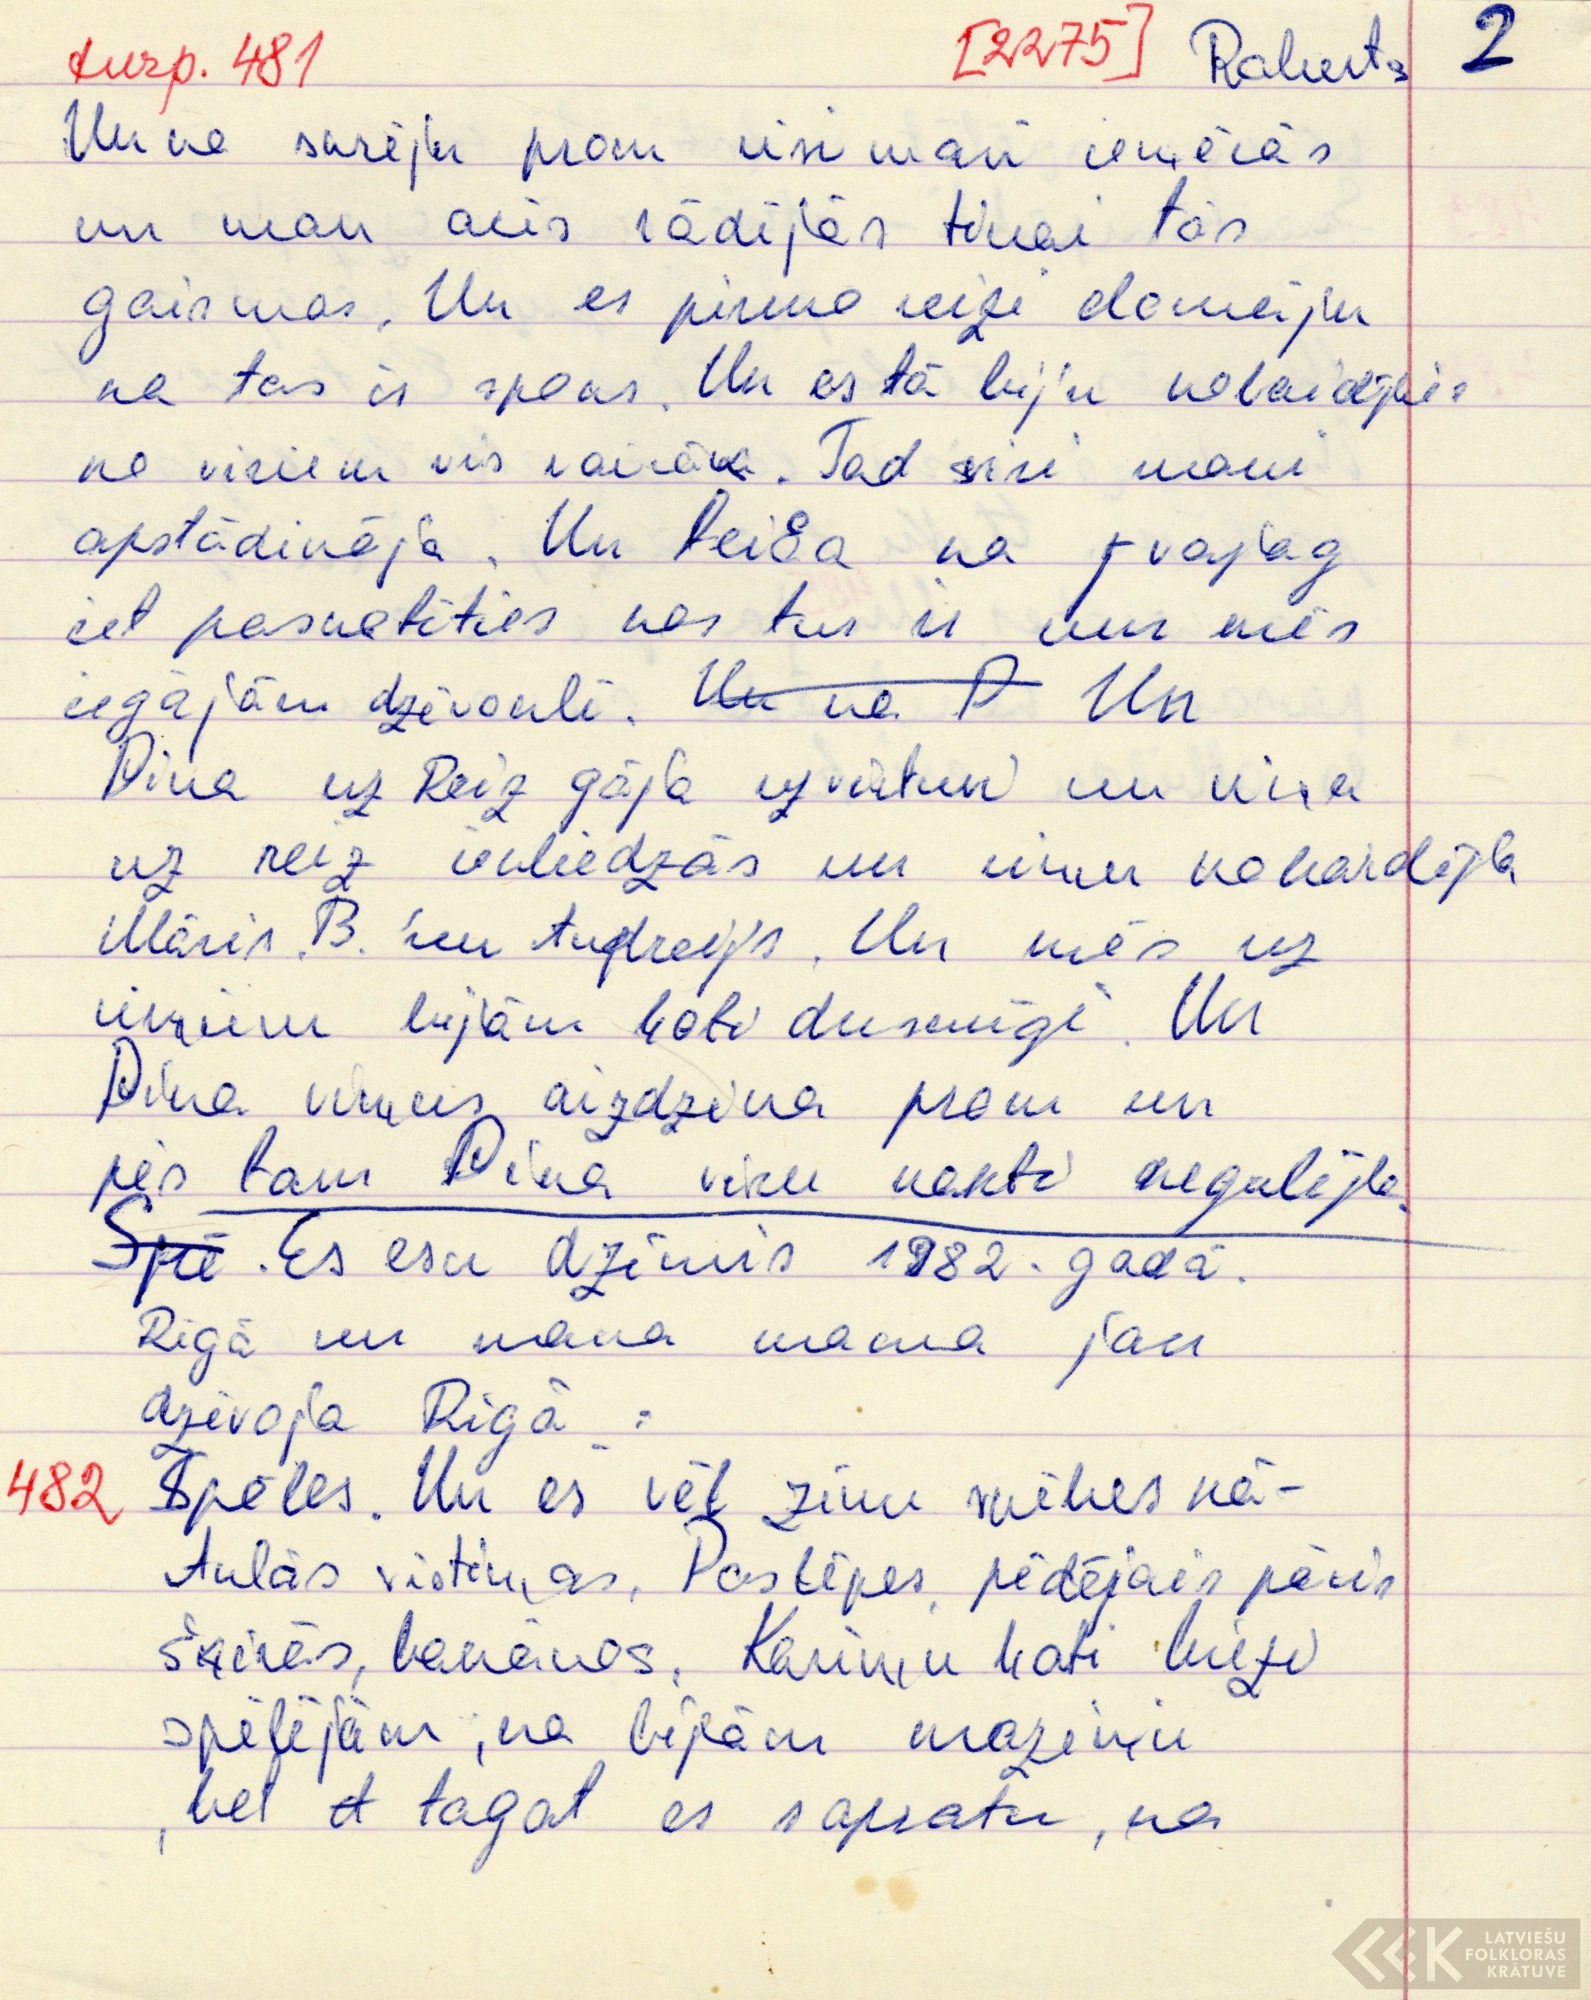 turp. 481 [2275] Roberts 2
Un ka skrēju prom visi mani ienķērās
un man acis rādījās tikai tās
gaismas. Un es pirmo reizi domāju
ka tas ir spoks. Un es tā biju nobaidījies
no visiem vis vairāk. Tad visi mani
apstādināja. Un teica ka j vajag
iet paskatīties kas tur ir un mēs
iegājām dzīvoklī. Un ka D Un
Dina uz Reiz gāja uzvirtuvi un viņa
uz reiz iekliedzās un viņu nobaidīja
Māris. B. un Andrejs. Un mēs uz
viņiem bijām ļoti dusmīgi. Un
Dina viņus aizdzina prom un
pēs tam Dina visu nakti negulēja.
Spē. Es esu dzimis 1982. gadā.
Rīgā un mana mama jau
dzīvoja Rīgā.
482 Spēles. Un es vēl zinu spēles kā-
Aulās vistiņas, Paslēpes, pēdējais pāris
šķirās, banānos. Kariņu ļoti bieži
spēlējām, ka bijām maziņi
, bet t tagat es sapratu, ka
LATVIEŠU
FOLKLORAS
KRĀTUVE